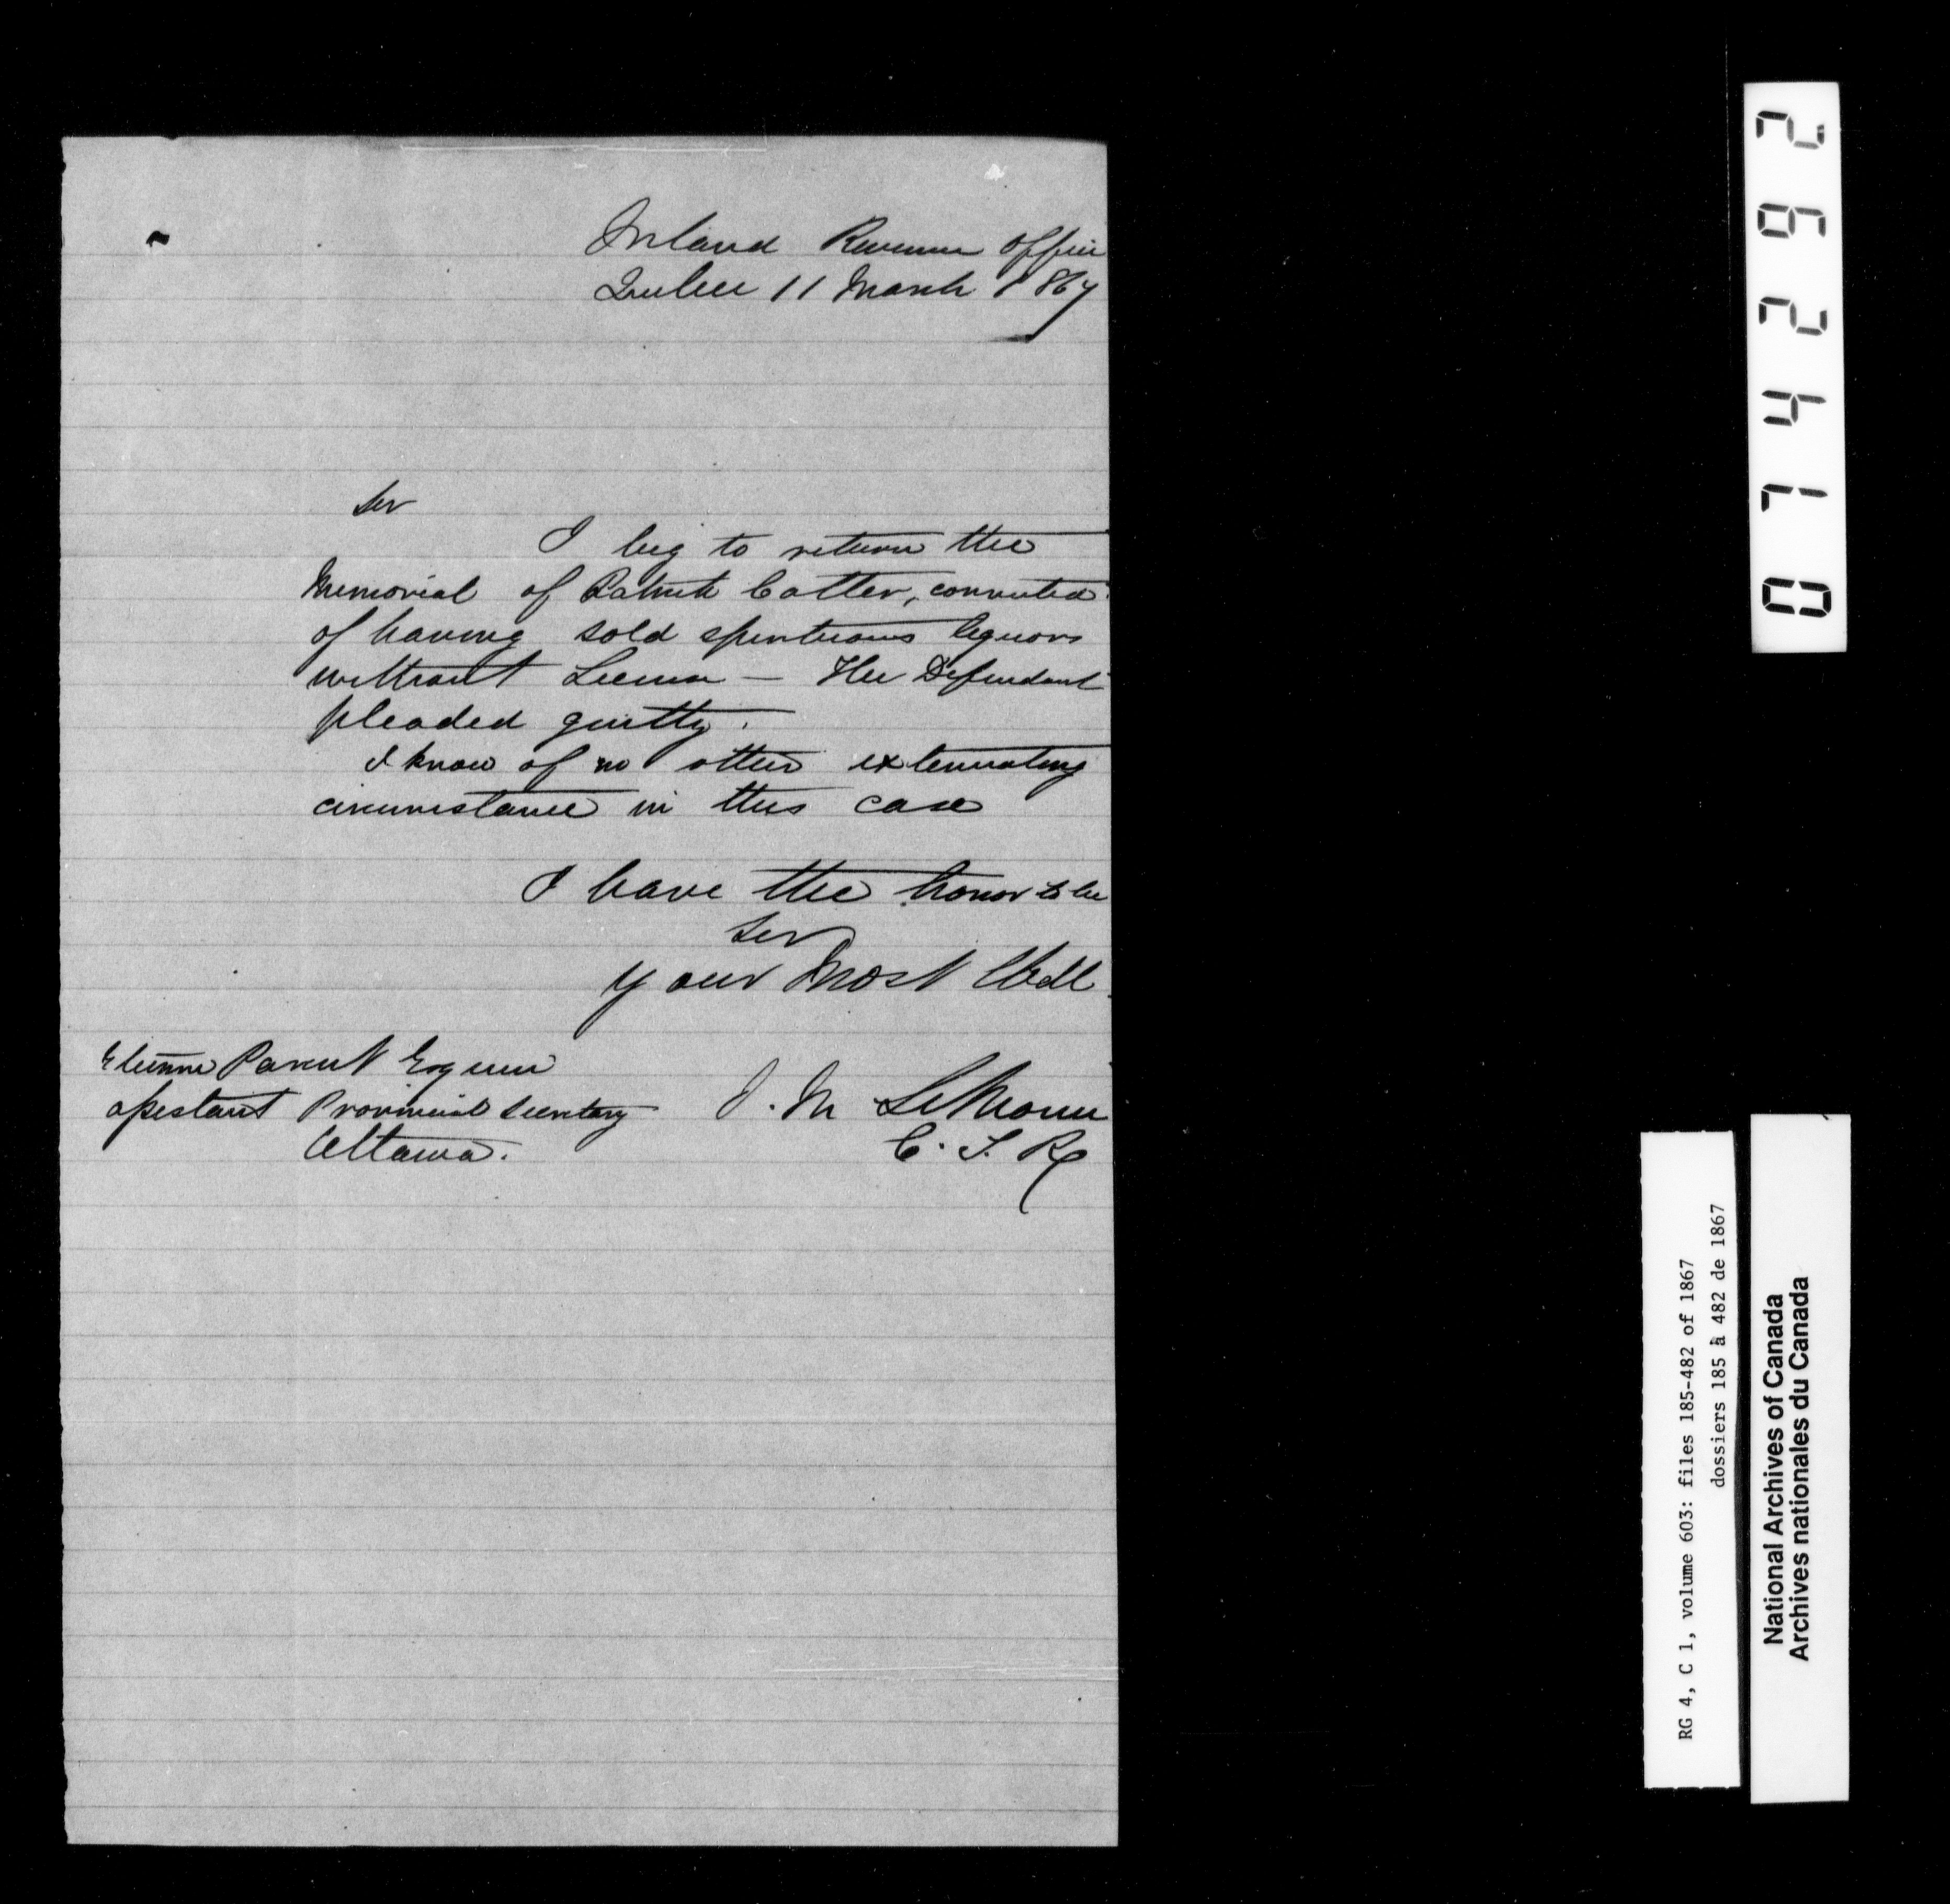 Inland Revenue Office
Quebec 11 March 1867
Sir
I beg to return the
Memorial of Patrick Cotter, convicted
of having sold spirituous liquors
without License — The Defendant
pleaded guilty.
I know of no other extenuating
circumstance in this case
I have the honor to be
Sir
your Most Obdt
Etienne Parent Esquire
assistant Provincial Secretary
Ottawa.
J. M LeMoine
C. I. R
074292
RG 4, C 1, volume 603: files 185-482 of 1867
dossiers 185 à 482 de 1867
National Archives of Canada
Archives nationales du Canada